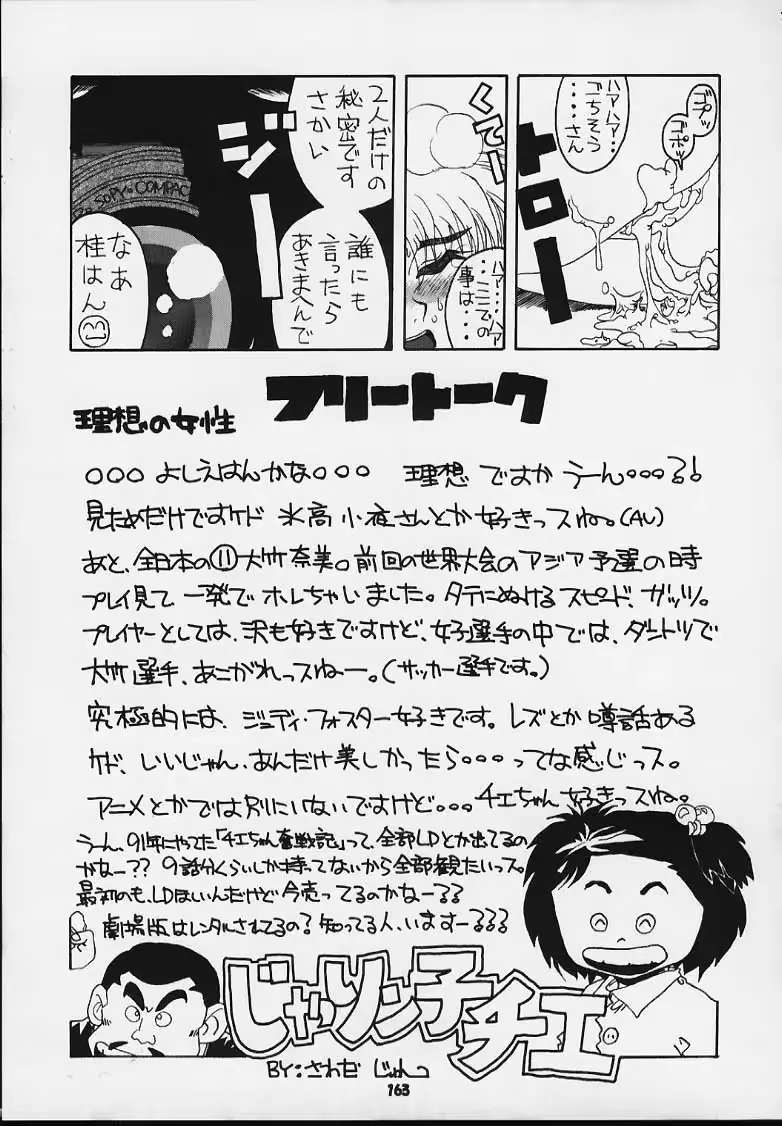 ハァハァ…
ごちそう
‥‥さん
ゴプッ
ゴポッ
トローー
くてー
ハァ…ハァ
‥ここでの
事は‥‥
2人だけの
秘密です
さかい
誰にも
言ったら
あきまへんで
ジーー
COMPAC
なあ
桂はん
フリートーク
理想の女性
○○○よしえはんかな○○○ 理想ですかうーん○○○る!
見ためだけですケド氷高小夜さんとか好きっスね。(AV)
あと、全日本の⑪大竹奈美。前回の世界大会のアジア予選の時
プレイ見て一発でホレちゃいました。タテにぬけるスピード、ガッツ。
プレイヤーとしては、沢も好きですけど、女子選手の中では、ダントツで
大竹選手、あこがれっスねー。(サッカー選手です。)
究極的には、ジュディ・フォスター好きです。レズとか噂話ある
ケド、いいじゃん、あんだけ美しかったら○○○ってな感じっス。
アニメとかでは別にいないですけど○○○チエちゃん好きっスね。
うーん、91年にやってた「チエちゃん奮戦記」って、全部LDとか出てるの
かなー??9話分くらいしか持ってないから全部観たいっス。
最初のも、LDほしいんだけど今売ってるのかなーるる
劇場版はレンタルされてるの?知ってる人、いますーるるる
じゃりン子チエ
BY:さわだじゅんこ
163